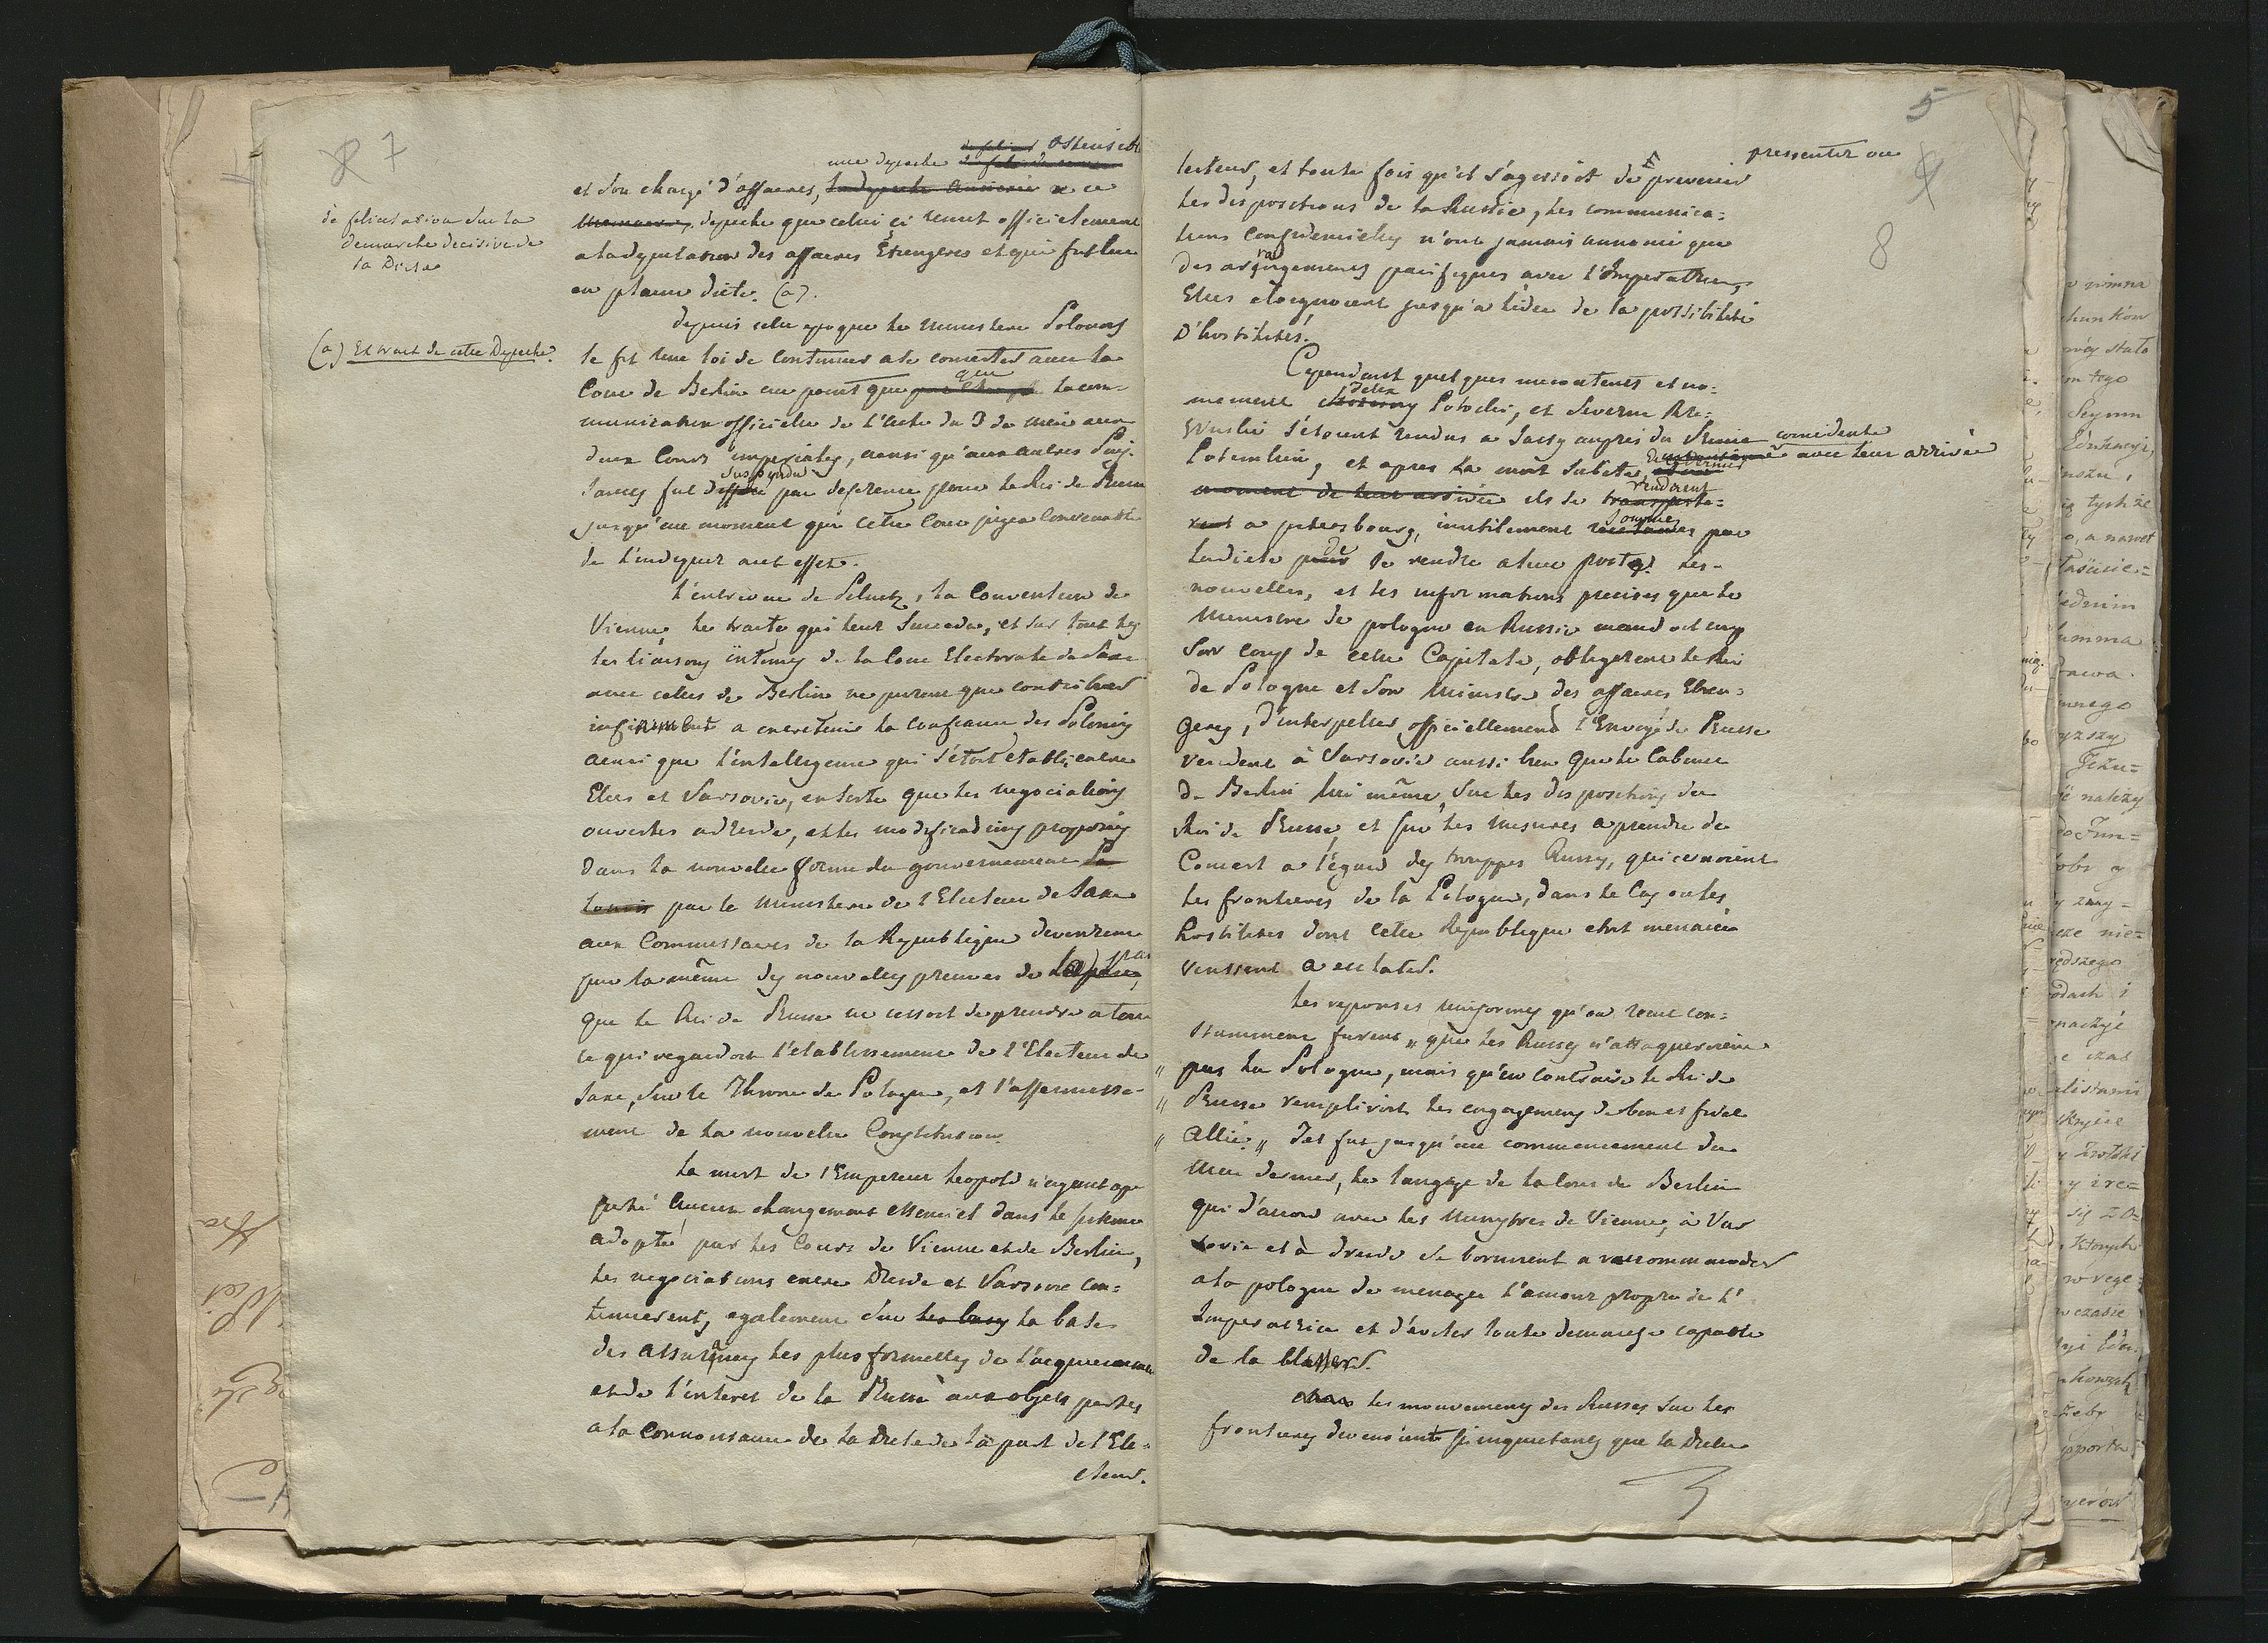 7
de felicitation sur la
demarche decisive de
la Diete
(a) Extrait de cette Depeche.
ostensible
une depeche
et son chargé d'affaires, la depeche a ce
depeche que celui ci remit officielement
a la deputation des affaires Etrangeres et qui fut lue
en pleine diete. (a).
depuis cette epoque le ministere Polonois
se fit une loi de continuer a se concerter avec la
Cour de Berlin au point que la com-
munication officielle de l'Acte du 3 de mai aux
deux Cours imperiales, ainsi qu'aux autres Puis-
suspendue
sances fut par deference pour le Roi de Prusse
jusqu'au moment que cette Cour jugea convenable
de l'indiquer a cet effet.
L'entrevue de Pilnitz, la Convention de
Vienne, le traité qui leur succeda, et sur tout les
les liaisons intimes de la Cour Electorale de Saxe
avec celles de Berlin ne purent que contribuer
infiniment a entretenir la confiance des Polonois
ainsi que l'intelligence qui s'étoit etablie entre
Elles et Varsovie, en sorte que les negociations
ouvertes a Dresde, et les modifications proposées
dans la nouvelle forme du gouvernement
par le Ministere de l'Electeur de Saxe
aux Commissaires de la Republique devinrent
par la même des nouvelles preuves de la part
que le Roi de Prusse ne cessoit de prendre a tout
ce qui regardoit l'etablissement de l'Electeur de
Saxe, sur le Throne de Pologne, et l'affermisse-
ment de la nouvelle Constitution.
La mort de l'Empereur Leopold n'ayant ap-
porté aucun changement essentiel dans le systeme
adopté par les Cours de Vienne et de Berlin,
les negociations entre Dresde et Varsovie con-
tinuerent, egalement sur les bases la base
des assurances les plus formelles de l'acquiescement
et de l'interet de la Prusse aux objets portés
a la connoissance de la Diete de la part de l'Ele-
cteur.
5
8
pressentir ou
lecteur, et toute fois qu'il s'agissoit de prevenir
les dispositions de la Russie, les communica-
tions confidentielles n'ont jamais annoncé que
des arrangements pacifiques avec l'Imperatrice,
Elles eloignoient jusqu'a l'idée de la possibilité
D'hostilités.
Cependant quelques mecontents et no-
Felix
mement Potocki, et Severin Rze-
wuski s'étoient rendus a Jassy aupres du Prince
Potemkin, et apres la mort subite, coincidente
avec leur arrivée
moment de leur arrivée ils se rendirent
a petersbourg, inutilement sommés par
la diete de se rendre a leur poste. Les
nouvelles, et les informations precises que le
Ministre de pologne en Russie mandoit coup
sur coup de cette Capitale, obligerent le Roi
de Pologne et son Ministre des affaires Etran-
geres, d'interpeller officiellement l'Envoyé de Prusse
resident à Varsovie aussi bien que le Cabinet
de Berlin lui même, sur les dispositions du
Roi de Prusse, et sur les mesures a prendre de
Concert a l'égard des trouppes Russes, qui cernoient
les frontieres de la Pologne, dans le Cas ou les
hostilités dont cette Republique etoit menacée
vinssent a eclater.
Les reponses uniformes qu'on recut con-
stamment furent „ que les Russes n'attaqueroient
„ pas la Pologne, mais qu'en contraire le Roi de
„ Prusse rempliroit les engagemens de bon et fidel
„ Allié „ Tel fut jusqu'au commencement du
Mai dernier, le langage de la Cour de Berlin
qui d'accord avec les Ministres de Vienne, à Var-
sovie et à Dresde se bornerent a reccommender
a la pologne de menager l'amour propre de l'
Imperatrice et d'eviter toute demarche capable
de la blesser.
les mouvemens des Russes sur les
frontieres devenoient si inquietants que la Diete